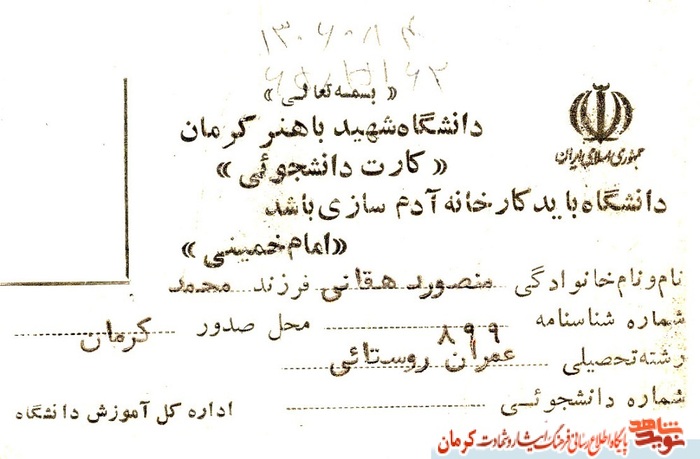 « بسمه تعالی »
دانشگاه شهید باهنر کرمان
جمهوری اسلامی ایران
« کارت دانشجوئی »
دانشگاه باید کارخانه آدم سازی باشد
« امام خمینی »
نام و نام خانوادگی منصور دهقانی فرزند محمد
شماره شناسنامه ۸۹۹ محل صدور کرمان
رشته تحصیلی عمران روستائی
شماره دانشجوئی
اداره کل آموزش دانشگاه
نوید شاهد
پایگاه اطلاع رسانی فرهنگ ایثار و شهادت کرمان